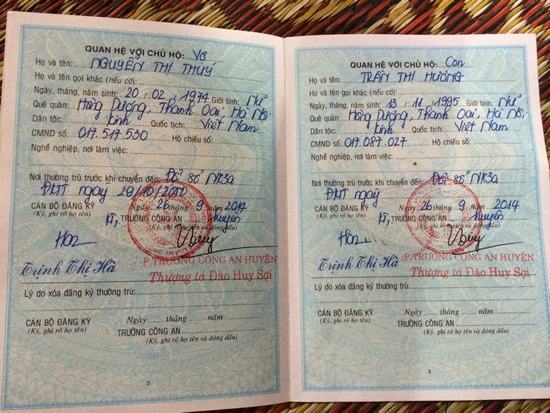 QUAN HỆ VỚI CHỦ HỘ: Vợ
Họ và tên: NGUYỄN THỊ THUÝ
Họ và tên gọi khác (nếu có):
Ngày, tháng, năm sinh: 20 / 02 / 1974 Giới tính: Nữ
Quê quán: Hồng Dương, Thanh Oai, Hà Nội
Dân tộc: Kinh Quốc tịch: Việt Nam
CMND số: 017.517.530 Hộ chiếu số:
Nghề nghiệp, nơi làm việc:
Nơi thường trú trước khi chuyển đến: Đổi sổ NK3a
ĐKTT ngày 29/10/2010
Ngày 26 tháng 9 năm 2014
CÁN BỘ ĐĂNG KÝ
KT, TRƯỞNG CÔNG AN huyện
(Ký, ghi rõ họ tên)
(Ký, ghi rõ họ tên và đóng dấu)
P.TRƯỞNG CÔNG AN HUYỆN
Trịnh Thị Hà
Thượng tá Đào Huy Sợi
Lý do xóa đăng ký thường trú:
Ngày......tháng......năm......
CÁN BỘ ĐĂNG KÝ
TRƯỞNG CÔNG AN
(Ký, ghi rõ họ tên)
(Ký, ghi rõ họ tên và đóng dấu)
2
QUAN HỆ VỚI CHỦ HỘ: Con
Họ và tên: TRẦN THỊ HƯƠNG
Họ và tên gọi khác (nếu có):
Ngày, tháng, năm sinh: 13 / 11 / 1995 Giới tính: Nữ
Quê quán: Hồng Dương, Thanh Oai, Hà Nội
Dân tộc: Kinh Quốc tịch: Việt Nam
CMND số: 017.087.027 Hộ chiếu số:
Nghề nghiệp, nơi làm việc:
Nơi thường trú trước khi chuyển đến: Đổi sổ NK3a
ĐKTT ngày
Ngày 26 tháng 9 năm 2014
CÁN BỘ ĐĂNG KÝ
KT, TRƯỞNG CÔNG AN huyện
(Ký, ghi rõ họ tên)
(Ký, ghi rõ họ tên và đóng dấu)
P.TRƯỞNG CÔNG AN HUYỆN
Trịnh Thị Hà
Thượng tá Đào Huy Sợi
Lý do xóa đăng ký thường trú:
Ngày......tháng......năm......
CÁN BỘ ĐĂNG KÝ
TRƯỞNG CÔNG AN
(Ký, ghi rõ họ tên)
(Ký, ghi rõ họ tên và đóng dấu)
3